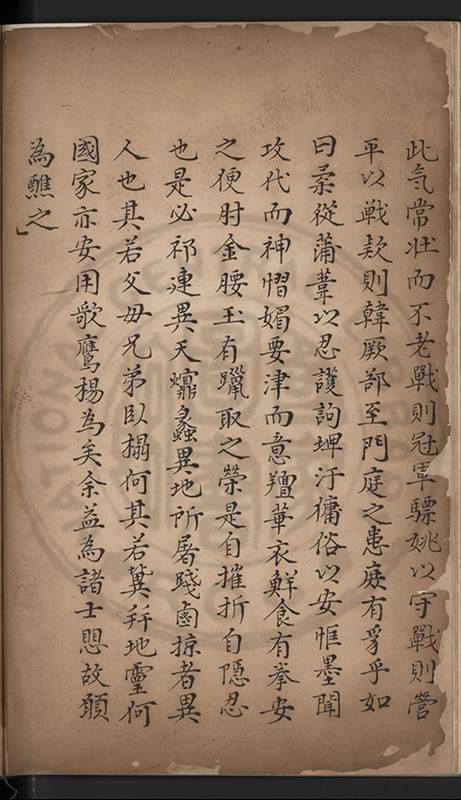 此気常壮而不老戰則冠軍驃姚以守戰則營
平以戦欵則韓厥郤至門庭之患庭有孚乎如
曰柔從蒲葦以忍護訽埤汙獢俗以安惟墨聞
攻代而神慴媚要津而意羶華衣鮮食有拳安
之便肘金腰玉有躐取之榮是自摧折自隠忍
也是必祁連異天爢蠡異地所屠踐鹵掠者異
人也其若父母兄弟臥搨何其若冀秄地靈何
國家亦安用歌鷹揚為矣余益為諸士愳故願
為醮之